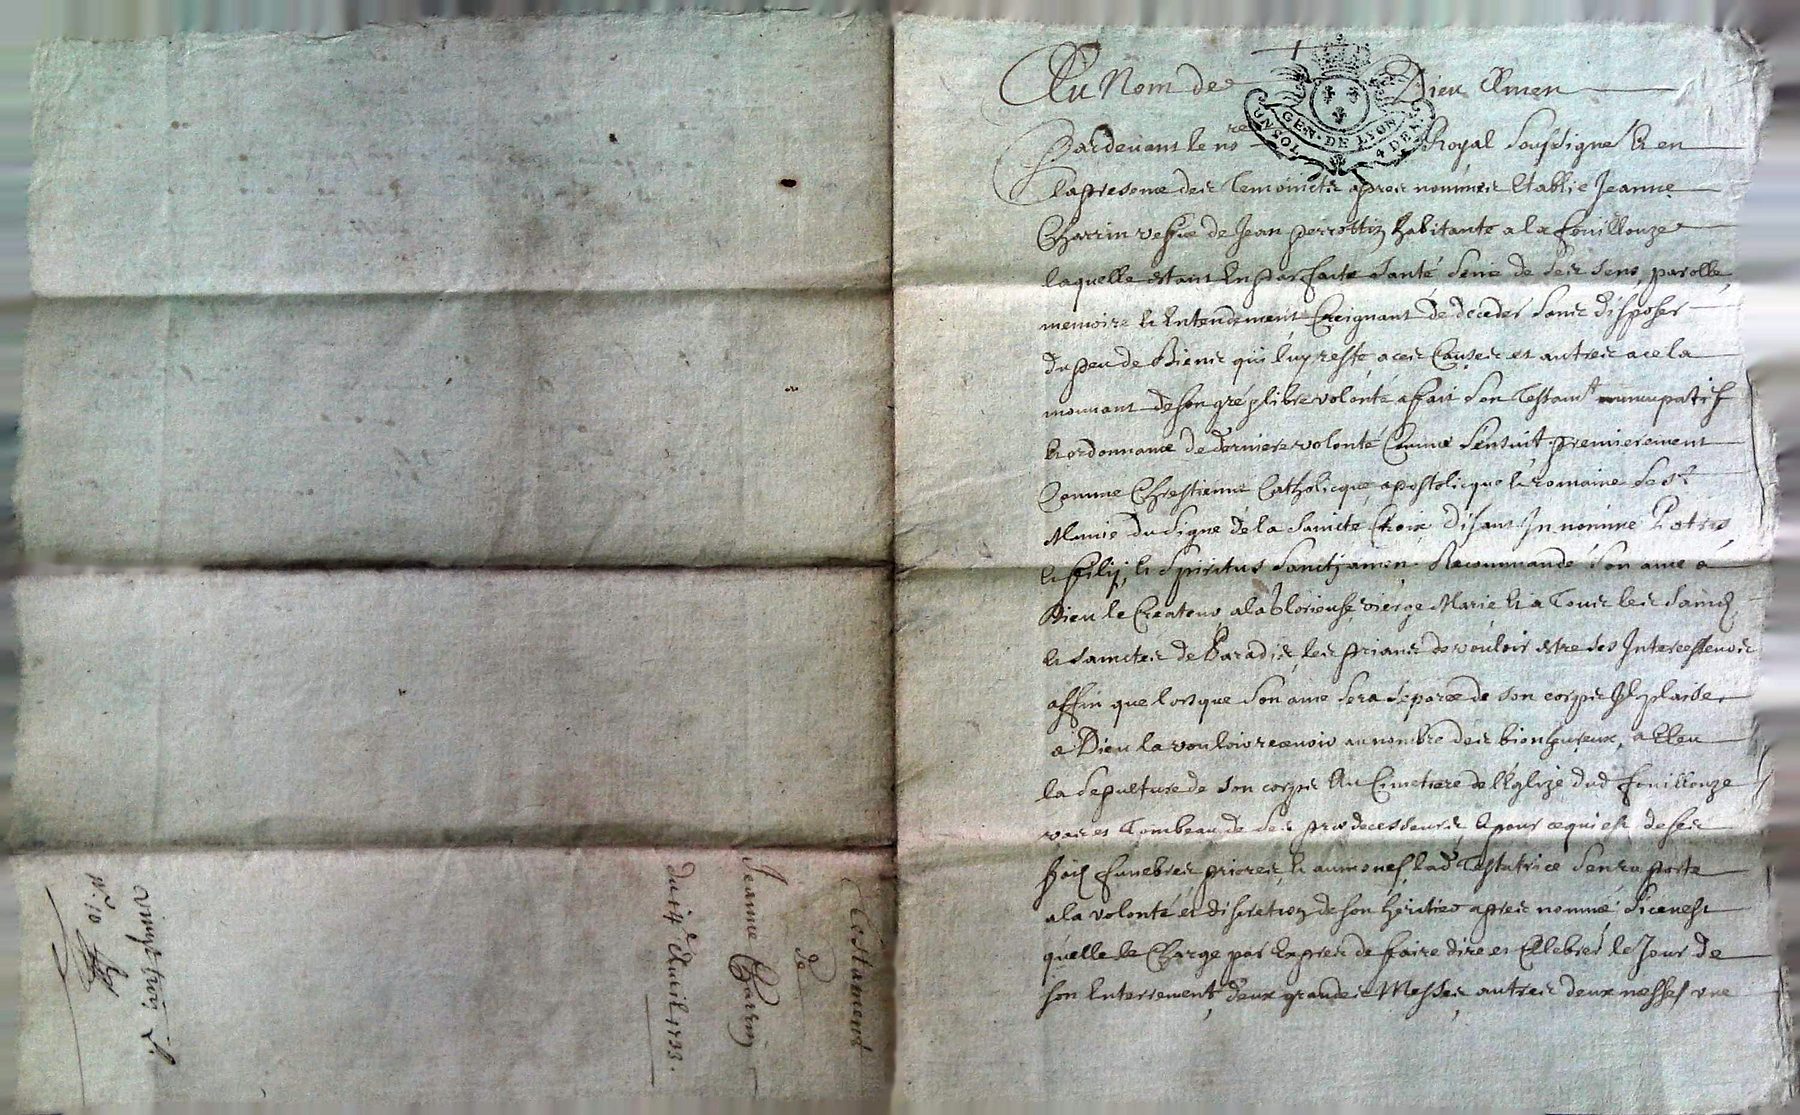 Au Nom de Dieu Amen
GEN. DE LYON
UNSOL 4 DEN.
Pardevant le no.re Royal Soussigné & en
la presence des Temoincts apres nommes Establie Jeanne
Charrin vefve de Jean perrottin habitante a la fouillouze
laquelle estant En parfaite santé Seine de ses sens, parolle
memoire & Entendement Craignant de deceder sans disposer
du peu de Biens qui luy reste, a ces Causes et autres a ce la
mouvant de son gré & libre volonté a fait son Testam.t nuncupatif
& ordonnance de derniere volonté Comme s'ensuit premierement
Comme Chrestienne Catholicque, apostolicque & romaine se st
Munie du signe de la saincte Croix disant In nomine Patris,
& filij, & spiritus sancti, amen. Recommandé son ame a
Dieu le Createur, a la glorieuse vierge Marie & a Tous les saincts
& sainctes de Paradis, les priant de vouloir estre ses Intercesseurs
affin que lorsque son ame sera separée de son corps Il plaise
a Dieu la vouloir recevoir au nombre des bienheureux, a Eleu
la sepulture de son corps Au Cimetiere de l'Eglize dud fouillouze
vas et Tombeau de ses predecesseurs & pour ce qui est de ses
frais funebres prieres & aumones, lad Testatrice s'en raporte
a la volonté et discretion de son heritier apres nommé si ce n'est
quelle le Charge par Expres de faire dire et Cellebrer le Jour de
son Enterrement, deux grandes Messes, autres deux messes une
Testament
de
Jeanne Charrin
du 14e Avril 1733.